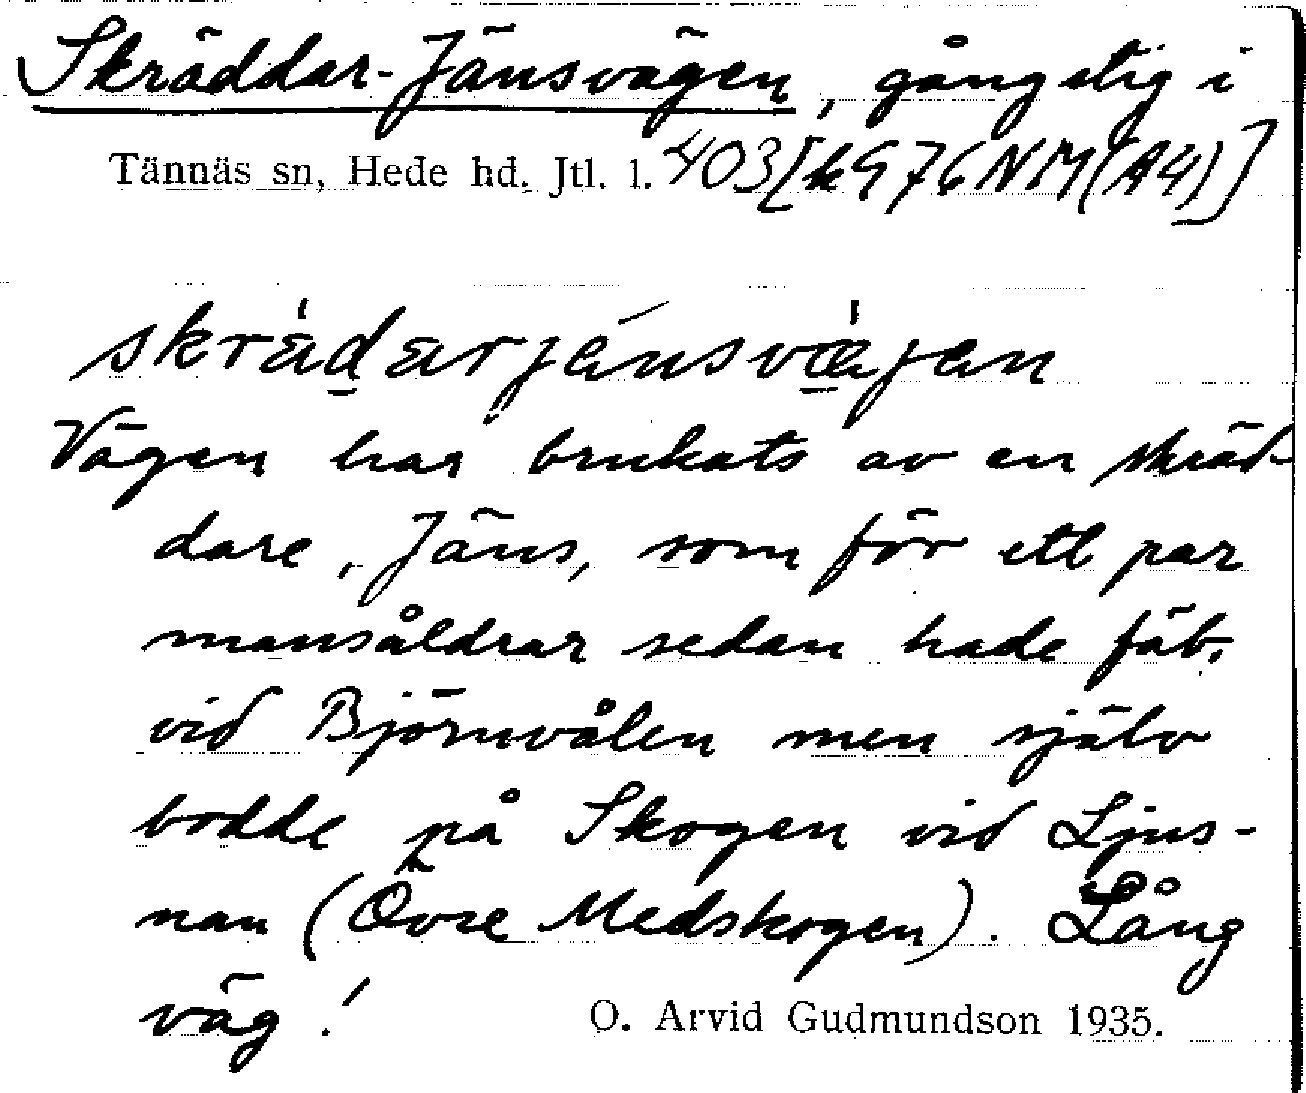 Skräddar-Jänsvägen, gångstig i
Tännäs sn, Hede hd. Jtl. l. 403[k976NM(A4)]
skrädarjänsvæ̀jen
Vägen har brukats av en skräd-
dare, Jäns, som för ett par
mansåldrar sedan hade fäb.
vid Björnvålen men själv
bodde på Skogen vid Ljus-
nan (Övre Medskogen). Lång
väg!
O. Arvid Gudmundson 1935.